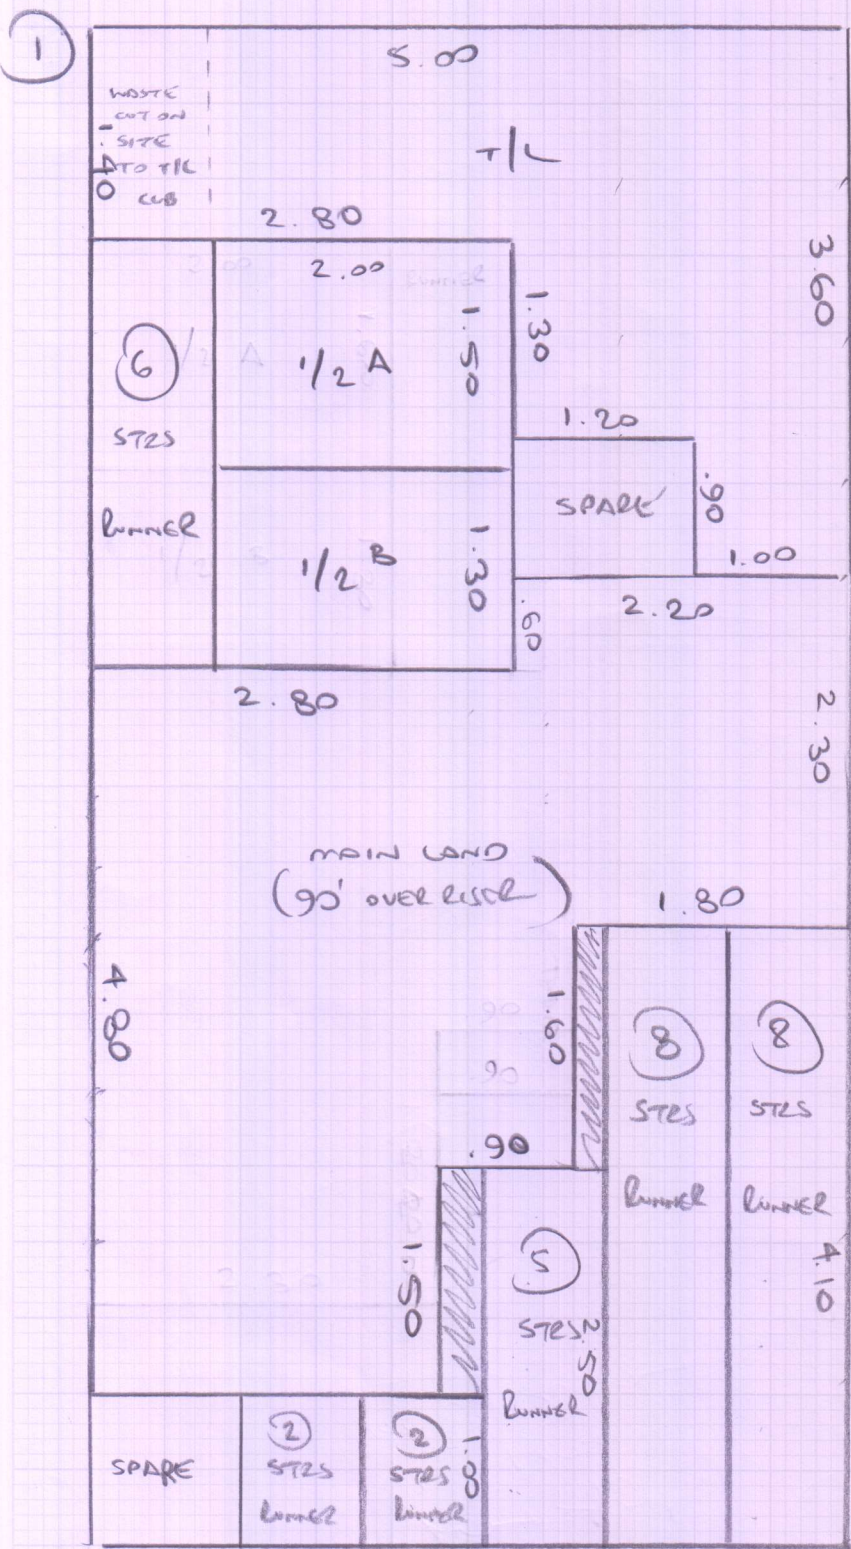 1
5.00
WASTE
CUT ON
SITE
TO T/L
CUB
1.40
T/L
3.60
2.80
2.00
1.50
1.30
1/2 A
6
STRS
RUNNER
1.20
SPARE
.90
1.00
1/2 B
1.30
.60
2.20
2.80
2.30
MAIN LAND
(90' OVER RISER)
1.80
4.80
1.60
8
STRS
RUNNER
8
STRS
RUNNER
4.10
.90
1.50
5
STRS
RUNNER
2.50
SPARE
2
STRS
RUNNER
2
STRS
RUNNER
1.00